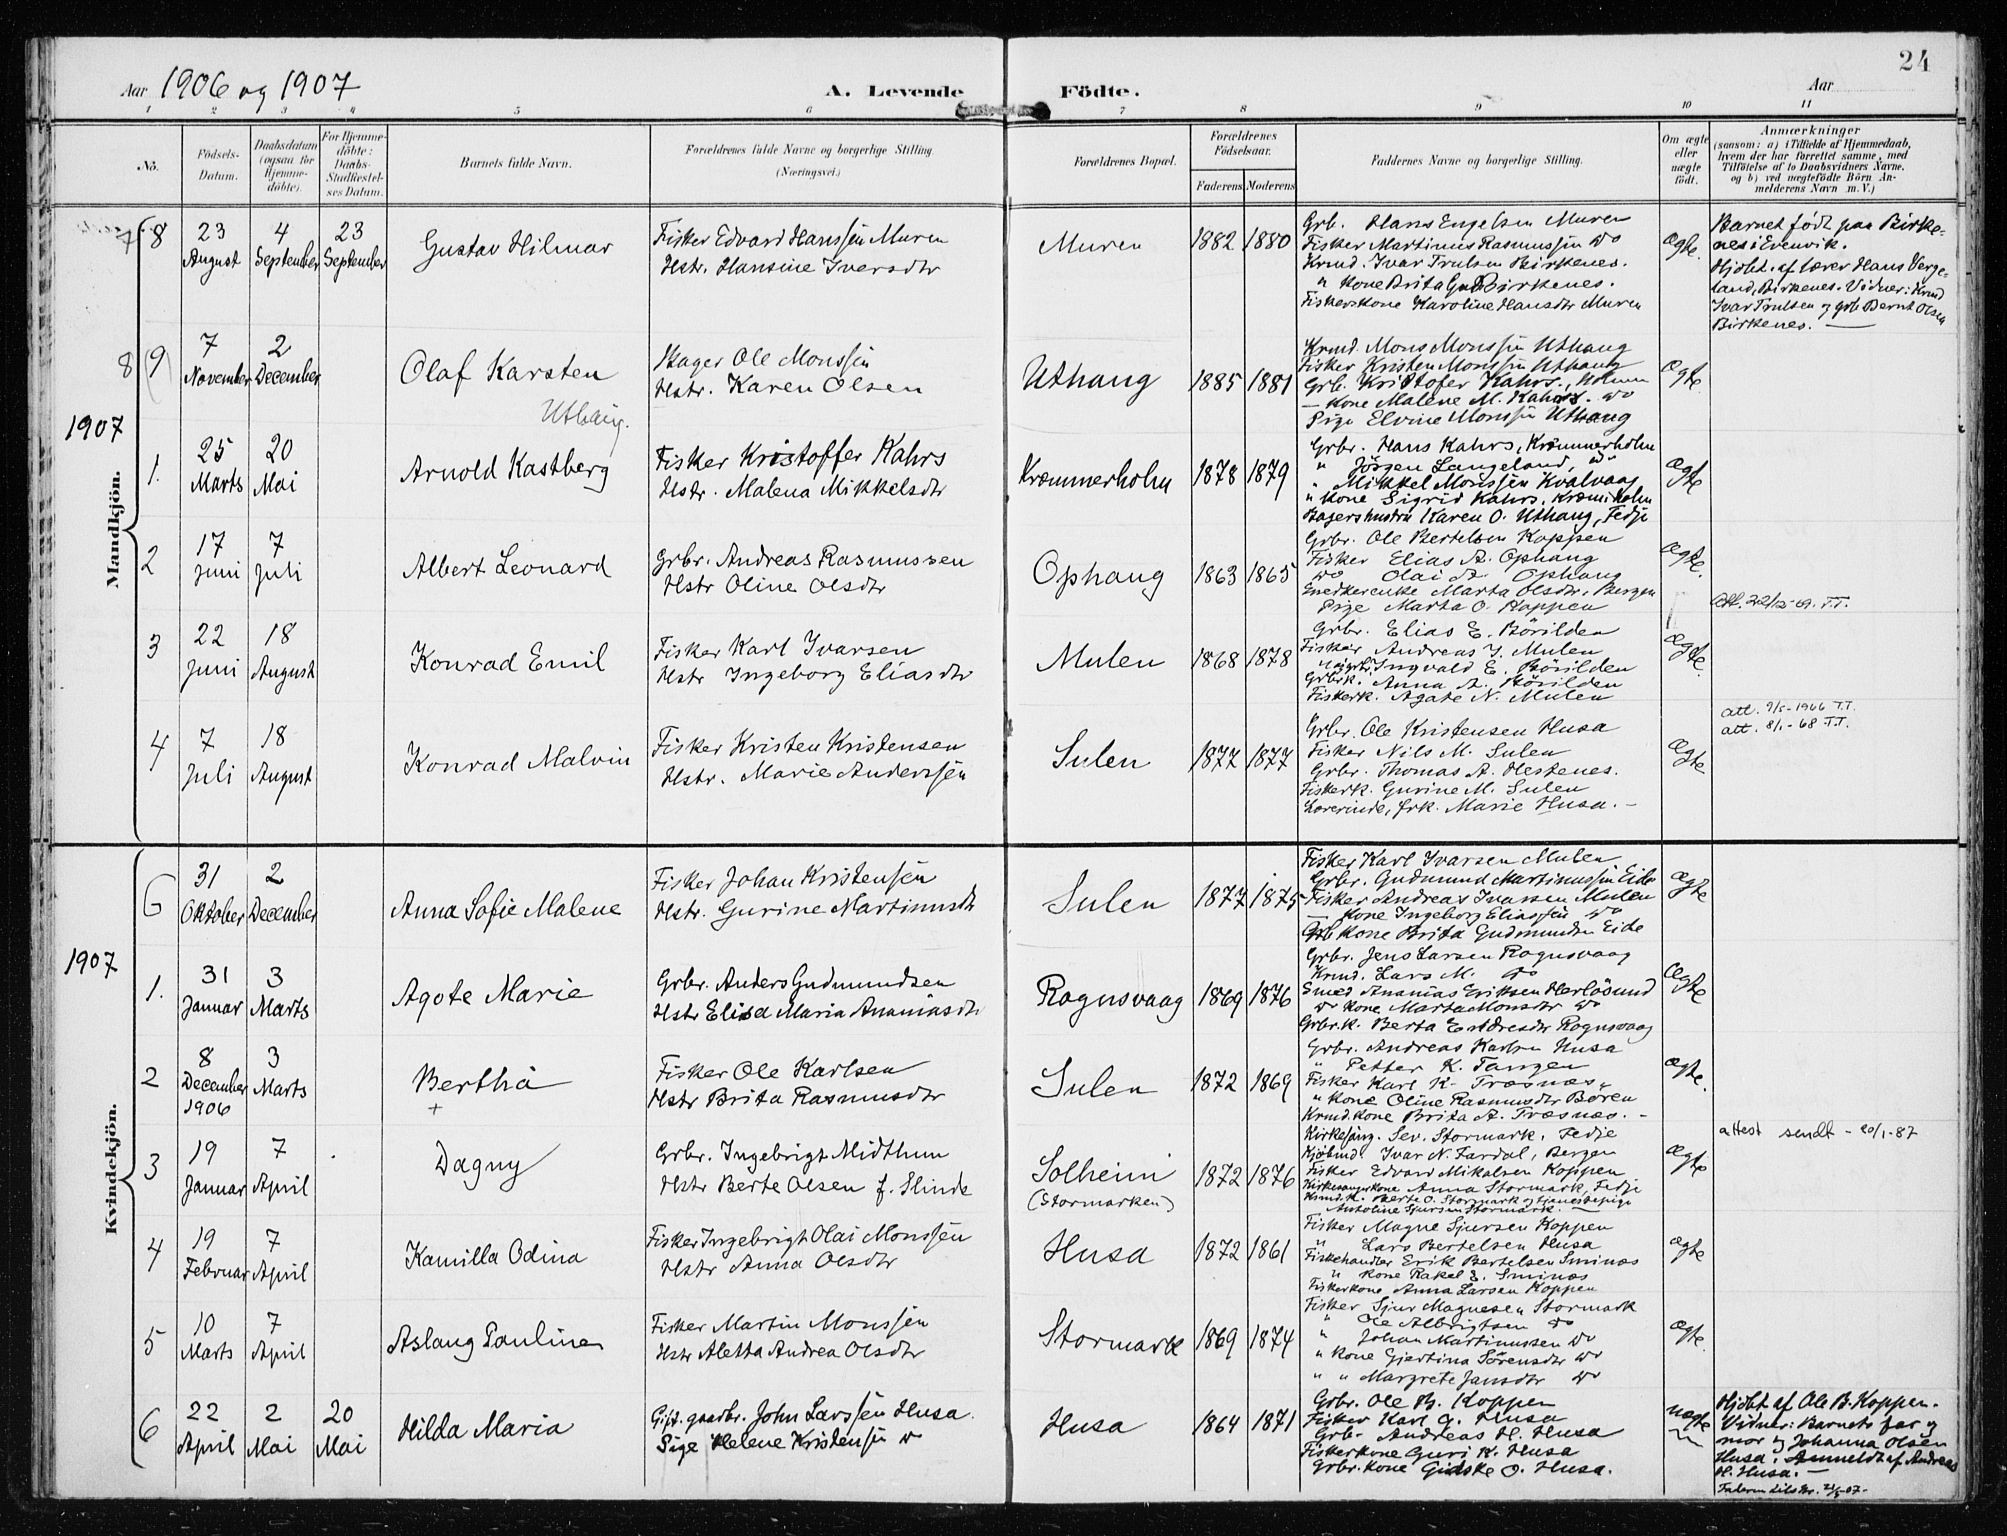 24
Aar 1906 og 1907
A. Levende Födte.
Aar
1 2 3 4 5 6 7 8 9 10 11
No.
Födsels-Datum.
Daabsdatum (ogsaa for Hjemme-döbte).
For Hjemme-döbte: Daabs-Stadfæstel-ses Datum.
Barnets fulde Navn.
Forældrenes fulde Navne og borgerlige Stilling. (Næringsvei.)
Forældrenes Bopæl.
Forældrenes Födselsaar.
Faderens Moderens
Faddernes Navne og borgerlige Stilling.
Om ægte eller uægte födt.
Anmærkninger
(saasom: a) i Tilfælde af Hjemmedaab, hvem der har forrettet samme, med Tilföielse af to Daabsvidners Navne. og b) ved uægtefödte Börn An-melderens Navn m. V.)
Mandkjön.
7 8
23 August
4 September
23 September
Gustav Hilmar
Fisker Edvard Hanssen Muren
Hstr. Hansine Iversdtr
Muren
1882 1880
Grb. Hans Engelsen Muren
Fisker Martinus Rasmussen do
Krmd. Ivar Trulsen Birkenes.
" Kone Brita G. Birkenes.
Fiskerskone Karoline Hansdtr Muren
Ægte.
Barnet födt paa Birke-
nes i Evenvik.
Hjdbt. af lærer Hans Verge-
land, Birkenes. Vidner: Krmd
Ivar Trulsen og grb Bernt Olsen
Birkenes.
8 (9)
7 November
2 December
Olaf Karsten
Uthaug.
Bager Ole Monssen
Hstr. Karen Olsen
Uthaug
1885 1881
Krmd. Mons Monssen Uthaug
Fisker Kristen Monssen Uthaug
Grb. Kristofer Kahrs.,
— Kone Malene M. Kahrs. do
Pige Elvine Monssen Uthaug
Ægte
1907
1.
25 Marts
20 Mai
Arnold Kastberg
Fisker Kristoffer Kahrs
Hstr. Malena Mikkelsdtr
Kræmmerholm
1878 1879
Grbr. Hans Kahrs, Kræmmerholm
" Jörgen Langeland, do
" Mikkel Monssen Kvalvaag
" Kone Sigrid Kahrs, Kræm.holm
Bagershustru Karen O. Uthaug, Fedje
Ægte
2
17 Juni
7 Juli
Albert Leonard
Grbr. Andreas Rasmussen
Hstr Oline Olsdtr
Ophaug
1863 1865
Grbr. Ole Bertelsen Koppen
Fisker Elias A. Ophaug
do Olai A. Ophaug
Snedkerenke Marta Olsdtr, Bergen
Pige Marta O. Koppen
Ægte.
Att. 22/12-69. T.T.
3
22 Juni
18 August
Konrad Emil
Fisker Karl Ivarsen
Hstr Ingeborg Eliasdtr
Mulen
1868 1878
Grbr. Elias E. Börilden
Fisker Andreas J. Mulen
Ingvald E. Börilden
Grbrk. Anna A. Börilden
Fiskerk. Agate N. Mulen
Ægte.
4
7 Juli
18 August
Konrad Malvin
Fisker Kristen Kristensen
Hstr. Marie Anderssen
Sulen
1877 1877
Grbr. Ole Kristensen Husa
Fisker Nils M. Sulen
Grbr. Thomas A. Hestenes.
Fiskerk. Gurine M. Sulen
Lærerinde, frk. Marie Husa.
Ægte
att. 9/5-1966 T.T.
att. 8/1-68 T.T.
Kvindekjön.
6
31 Oktober
2 December
Anna Sofie Malene
Fisker Johan Kristensen
Hstr. Gurine Martinusdtr
Sulen
1877 1875
Fisker Karl Ivarsen Mulen
Grbr. Gudmund Martinussen Eide
Fisker Andreas Ivarsen Mulen
— Kone Ingeborg Eliassen do
Grb Kone Brita Gudmundsen Eide
Ægte
1907
1.
31 Januar
3 Marts
Agote Marie
Grbr. Anders Gudmundsen
Hstr Elisa Maria Ananiasdtr
Rognsvaag
1869 1876
Grbr. Jens Larsen Rognsvaag
Krmd. Lars M. do
Smed Ananias Eriksen Herlösund
do Kone Marta Monsdtr do
Grbr.K. Berta Endresdtr Rognsvaag
Ægte
2
8 December 1906
3 Marts
Bertha
+
Fisker Ole Karlsen
Hstr Brita Rasmusdtr
Sulen
1872 1869
Grbr. Andreas Karlsen Husa
" Petter K. Tangen
Fisker Karl K. Træsnæs
" Kone Oline Rasmusdtr Bören
Krmd.Kone Brita A. Træsnæs.
Ægte.
3
19 Januar
7 April
Dagny
Grbr. Ingebrigt Midthun
Hstr Berte Olsen f. Slinde
Solheim
(Stormarken)
1872 1876
Kirkesang. Sev. Stormark, Fedje
Kjöbmd. Ivar N. Fardal, Bergen
Fisker Edvard Mikalsen Koppen
Kirkesangerkone Anna Stormark, Fedje
Krmd.K. Berte O. Stormark og tjenestepige
Antoline Sjursen Stormark.
Ægte
attest sendt - 20/1-87
4
19 Februar
7 April
Kamilla Odina
Fisker Ingebrigt Olai Monssen
Hstr Anna Olsdtr
Husa
1872 1861
Fisker Magne Sjursen Koppen
" Lars Bertelsen Husa
Fiskehandler Erik Bertelsen Sminæs
" Kone Rakel E. Sminæs
Fiskerkone Anna Larsen Koppen
Ægte
5
10 Marts
7 April
Aslaug Pauline
Fisker Martin Monssen
Hstr Aletta Andrea Olsdtr
Stormark
1869 1874
Fisker Sjur Magnesen Stormark
" Ole Albrigtsen do
" Johan Martinussen do
" Kone Gjertina Sörensdtr do
" " Margrete Jansdtr do
Ægte.
6
22 April
2 Mai
20 Mai
Hilda Maria
Gift. gaardbr. John Larssen Husa.
Pige Helene Kristensen do
Husa
1864 1871
Grbr. Ole B. Koppen
Fisker Karl G. Husa
Grb. Andreas H. Husa
Fiskerkone Guri K. Husa
Grbr.Kone Gidske O. Husa.
uægte
Hjdbt af Ole B. Koppen.
Vidner: Barnets far og
mor og Johanna Olsen
Husa. Anmeldt af Andreas
H. Husa.